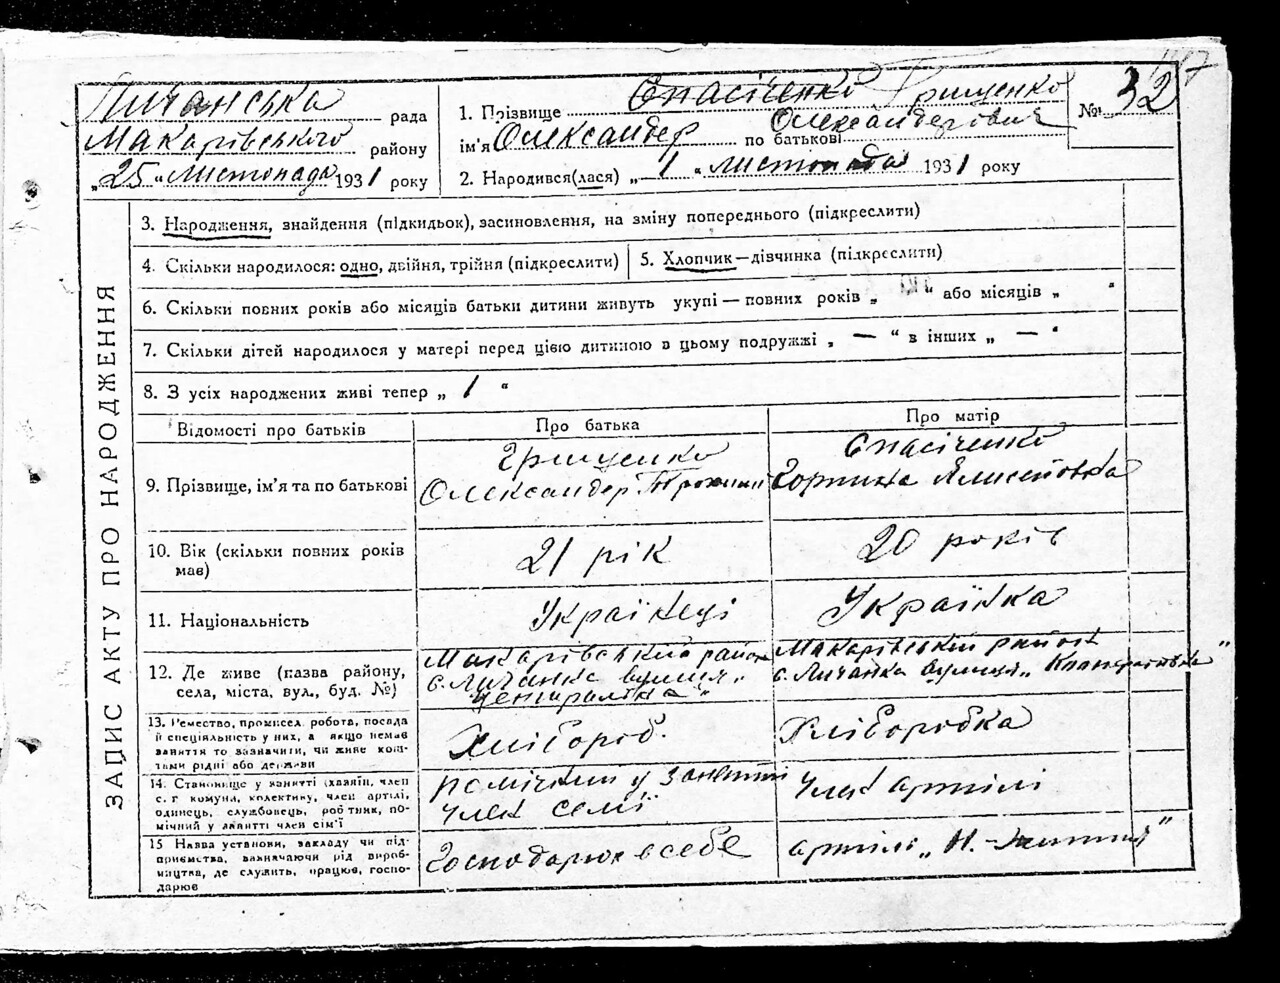 Личанська рада
Макарівського району
„25“ Листопада 1931 року
1. Прізвище Спасіченко Грищенко
ім'я Олександер по батькові Олександерович
2. Народився(лася) „1“ листопада 1931 року
№ 32
ЗАПИС АКТУ ПРО НАРОДЖЕННЯ
3. Народження, знайдення (підкидьок), засиновлення, на зміну попереднього (підкреслити)
4. Скільки народилося: одно, двійня, трійня (підкреслити)
5. Хлопчик—дівчинка (підкреслити)
6. Скільки повних років або місяців батьки дитини живуть укупі — повних років „ “ або місяців „ “
7. Скільки дітей народилося у матері перед цією дитиною в цьому подружжі „ — “ в інших „ — “
8. З усіх народжених живі тепер „ 1 “
Відомості про батьків
Про батька
Про матір
9. Прізвище, ім'я та по батькові
Грищенко
Олександер
Спасіченко
Горпина
10. Вік (скільки повних років мав)
21 рік
20 років
11. Національність
Українець
Українка
12. Де живе (назва району,
села, міста, вул., буд. №)
Макарівський район
с. Личанка вулиця
Макарівський район
с. Личанка вулиця
13. Ремество, промисел, робота, посада
й спеціяльність у них, а якщо немає
заняття то зазначити, чи живе кош-
тами рідні або держави
Хлібороб.
Хліборобка
14. Становище у занятті (хазяїн, член
с. г комуни, колективу, член артілі,
одинець, службовець, робітник, по-
мічний у занятті член сім'ї
помічний у занятті
член семї
Член артілі
15 Назва установи, закладу чи під-
приємства, визначаючи рід вироб-
ництва, де служить, працює, госпо-
дарює
Господарює в себе
артілі „Н.-Життя“